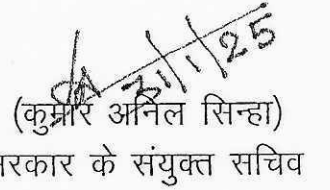 31/1/25
(कुमार अनिल सिन्हा)
सरकार के संयुक्त सचिव